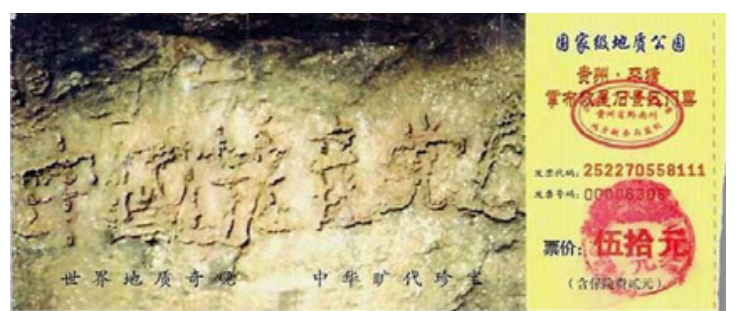 中國共产党
世界地质奇观 中华旷代珍宝
国家级地质公园
贵州·平塘
掌布救星石景区门票
贵州省黔南州
发票代码: 252270558111
发票号码:
票价: 伍拾元
(含保险费贰元)